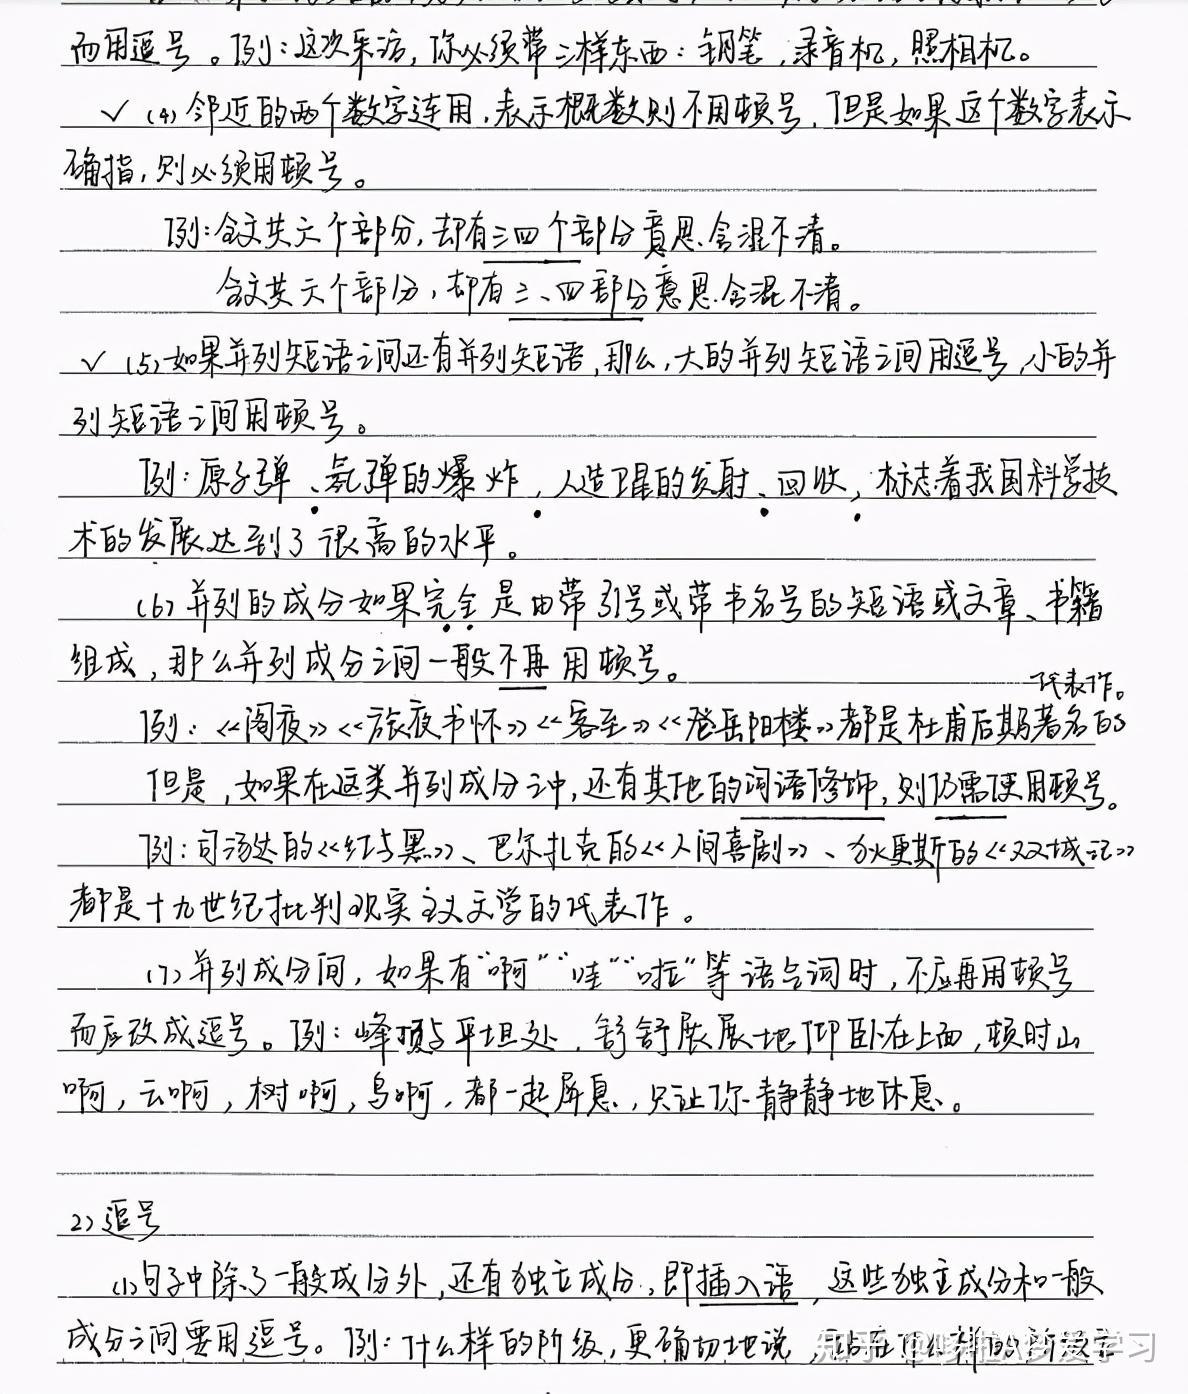 而用逗号。例：这次采访，你必须带三样东西：钢笔，录音机，照相机。
✓ (4) 邻近的两个数字连用，表示概数则不用顿号，但是如果这个数字表示
确指，则必须用顿号。
例：全文共六个部分，却有三四个部分意思含混不清。
全文共六个部分，却有三、四部分意思含混不清。
✓ (5) 如果并列短语之间还有并列短语，那么，大的并列短语之间用逗号，小的并
列短语之间用顿号。
例：原子弹、氢弹的爆炸，人造卫星的发射、回收，标志着我国科学技
术的发展达到了很高的水平。
(6) 并列的成分如果完全是由带引号或带书名号的短语或文章、书籍
组成，那么并列成分之间一般不再用顿号。
代表作。
例：《阁夜》《旅夜书怀》《客至》《登岳阳楼》都是杜甫后期著名的
但是，如果在这类并列成分之中，还有其他的词语修饰，则仍需使用顿号。
例：司汤达的《红与黑》、巴尔扎克的《人间喜剧》、狄更斯的《双城记》
都是十九世纪批判现实主义文学的代表作。
(7) 并列成分间，如果有“啊”“哇”“啦”等语气词时，不应再用顿号
而应改成逗号。例：峰顶与平坦处，舒舒展展地仰卧在上面，顿时山
啊，云啊，树啊，鸟啊，都一起屏息，只让你静静地休息。
2) 逗号
(1) 句子中除了一般成分外，还有独立成分，即插入语，这些独立成分和一般
成分之间要用逗号。例：什么样的阶级，更确切地说，站在什么样的阶级立
知乎 @哆啦A梦爱学习